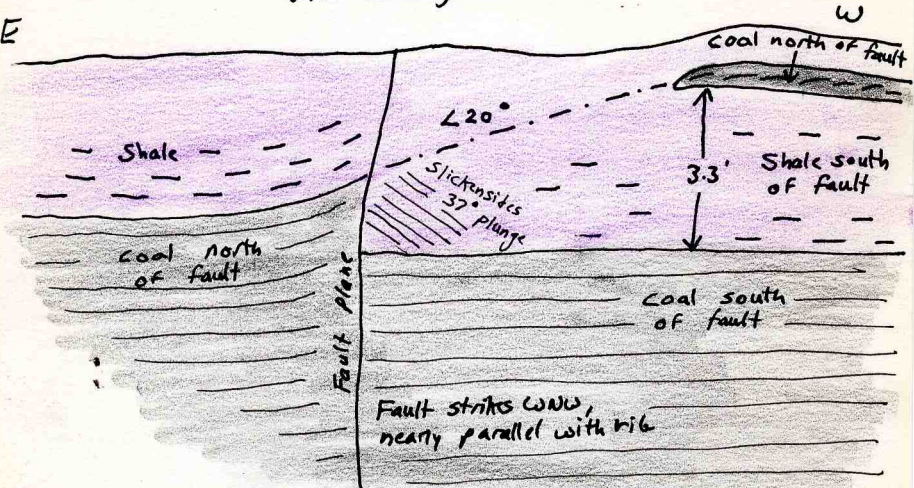 E
W
coal north of fault
∠20°
Shale
Slickensides
37° plunge
3.3'
Shale south
of fault
coal north
of fault
Fault plane
coal south
of fault
Fault strikes WNW,
nearly parallel with rib